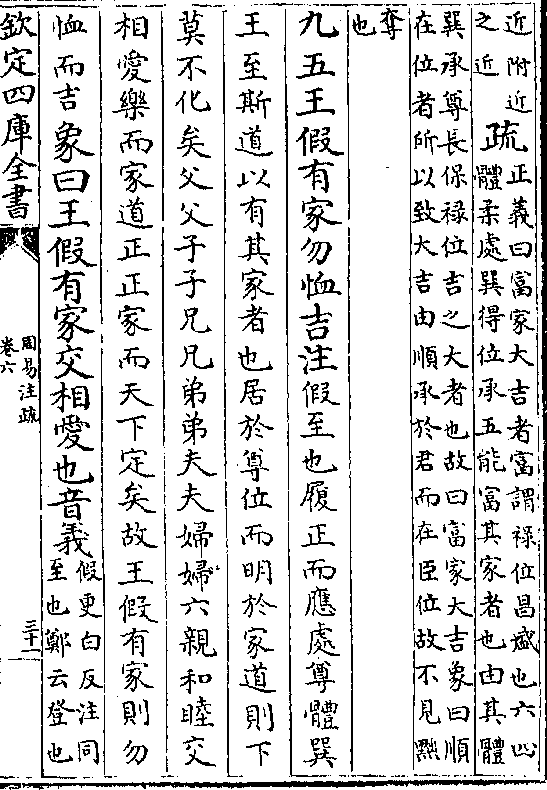 近附近
之近
疏
正義曰富家大吉者富謂禄位昌盛也六四
體柔處巽得位承五能富其家者也由其體
巽承尊長保禄位吉之大者也故曰富家大吉象曰順
在位者所以致大吉由順承於君而在臣位故不見黜
奪
也
九五王假有家勿恤吉注假至也履正而應處尊體巽
王至斯道以有其家者也居於尊位而明於家道則下
莫不化矣父父子子兄兄弟弟夫夫婦婦六親和睦交
相愛樂而家道正正家而天下定矣故王假有家則勿
恤而吉象曰王假有家交相愛也音義
假更白反注同
至也鄭云登也
欽定四庫全書
周易注疏
卷六
三十一